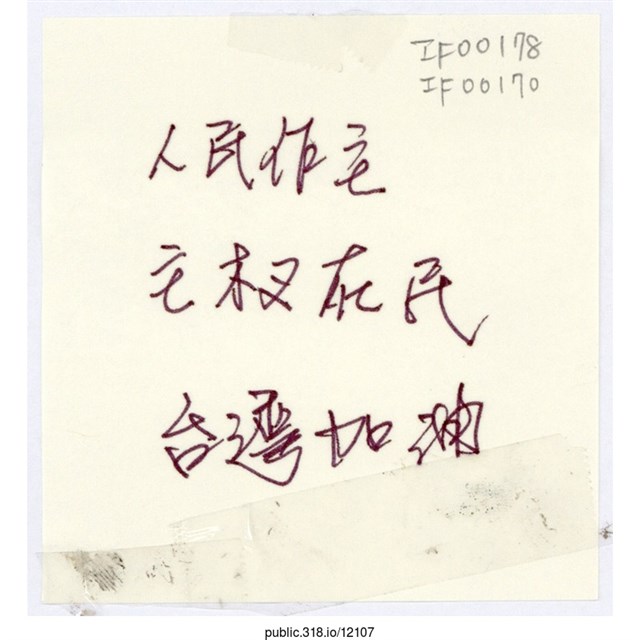 IF00178
IF00170
人民作主
主权在民
台灣加油
public.318.io/12107